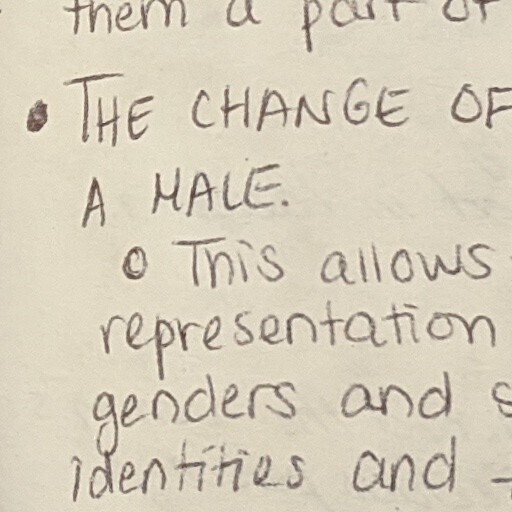 them a part of
• THE CHANGE OF
A MALE.
o This allows
representation
genders and
identities and